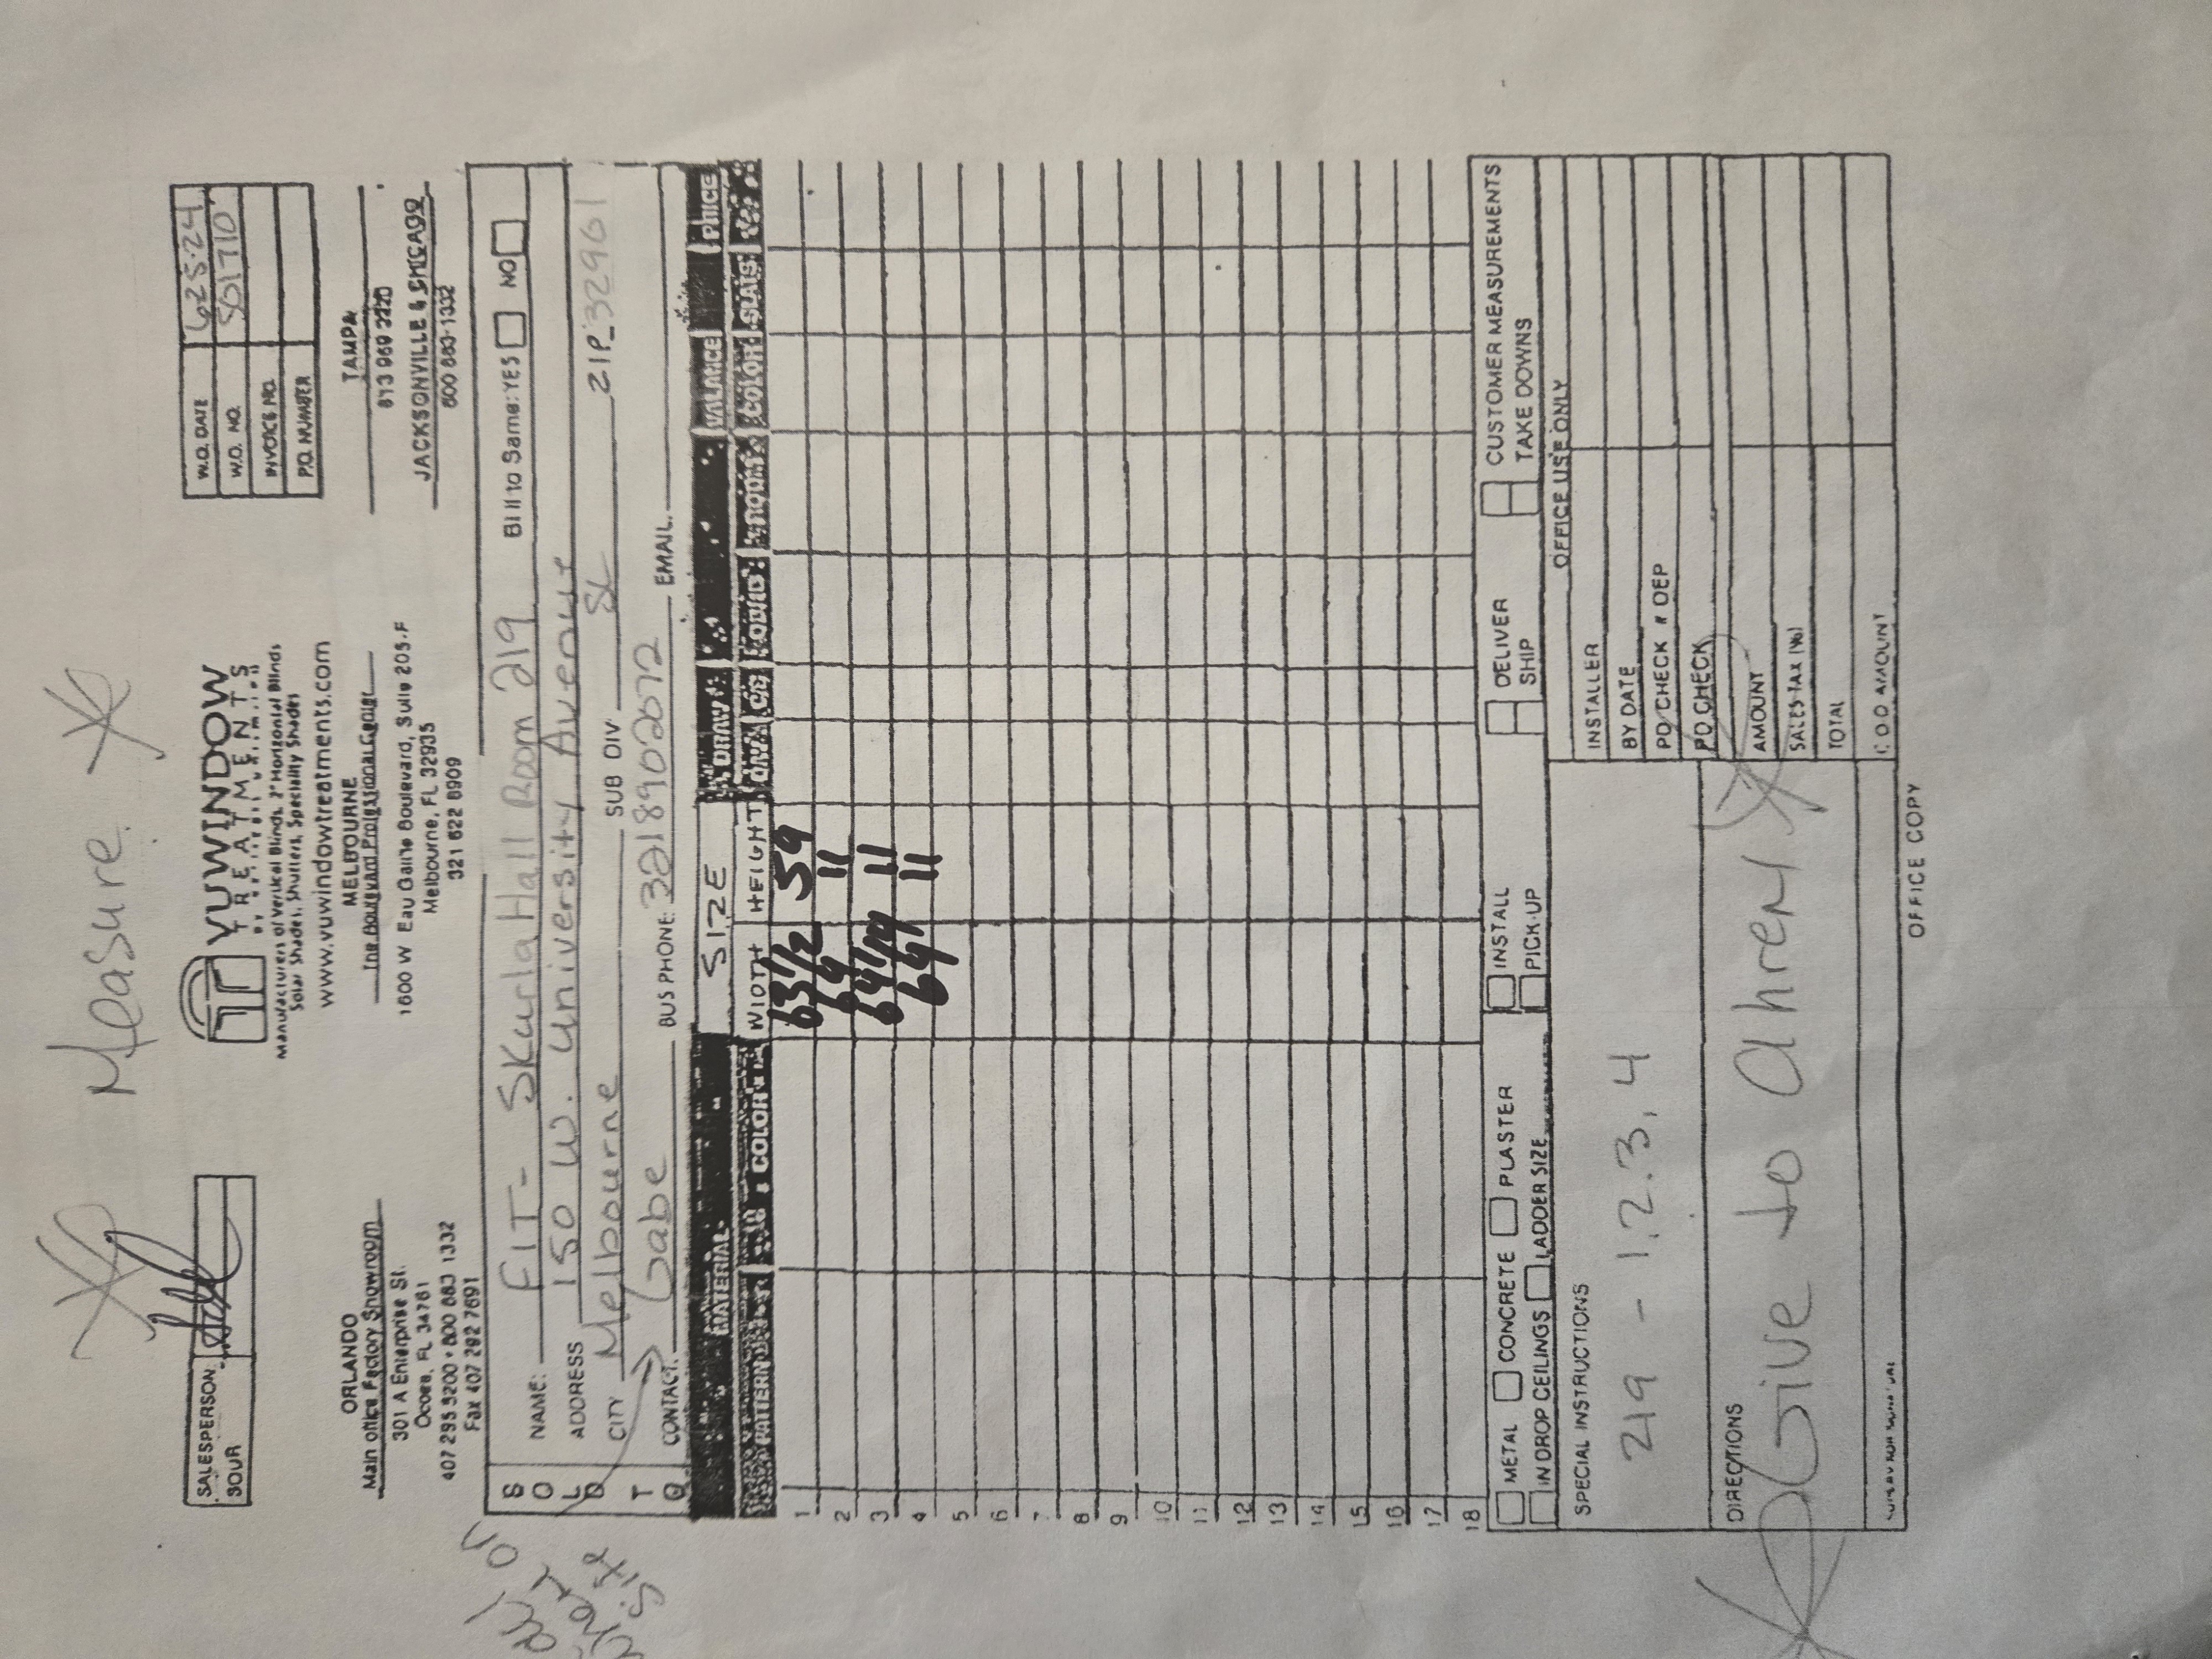 Measure
SALESPERSON
SOUR
VUWINDOW
TREATMENTS
Manufacturers of Vertical Blinds, 2" Horizontal Blinds
Solar Shades, Shutters, Speciality Shades
www.vuwindowtreatments.com
W.O. DATE 6-25-24
W.O. NO. 501710
INVOICE NO.
P.O. NUMBER
ORLANDO
Main office, Factory Showroom
301 A Enterprise St.
Ocoee, FL 34761
407 295 9200 • 800 883 1332
Fax 407 292 7691
MELBOURNE
The Boulevard Professional Center
1600 W Eau Gallie Boulevard, Suite 205-F
Melbourne, FL 32935
321 622 8909
TAMPA
813 969 2220
JACKSONVILLE & CHICAGO
800 883-1332
SOLD TO
NAME: FIT- Skurla Hall Room 219 Bill to Same: YES NO
ADDRESS 150 W. University Avenue
CITY Melbourne SUB DIV ZIP 32901
CONTACT: Gabe BUS PHONE: 3218902072 EMAIL.
MATERIAL SIZE DRAW VALANCE PRICE
PATTERN COLOR WIDTH HEIGHT COLOR SLATS
1 63 1/2 59
2 64 11
3 64 1/4 11
4 64 11
5
6
7
8
9
10
11
12
13
14
15
16
17
18
METAL CONCRETE PLASTER INSTALL DELIVER CUSTOMER MEASUREMENTS
IN DROP CEILINGS LADDER SIZE PICK-UP SHIP TAKE DOWNS
SPECIAL INSTRUCTIONS
219 - 1, 2, 3, 4
OFFICE USE ONLY
INSTALLER
BY DATE
PD CHECK # DEP
PD CHECK
DIRECTIONS
Give to Ahren
AMOUNT
SALES TAX (%)
TOTAL
C.O.D AMOUNT
OFFICE COPY